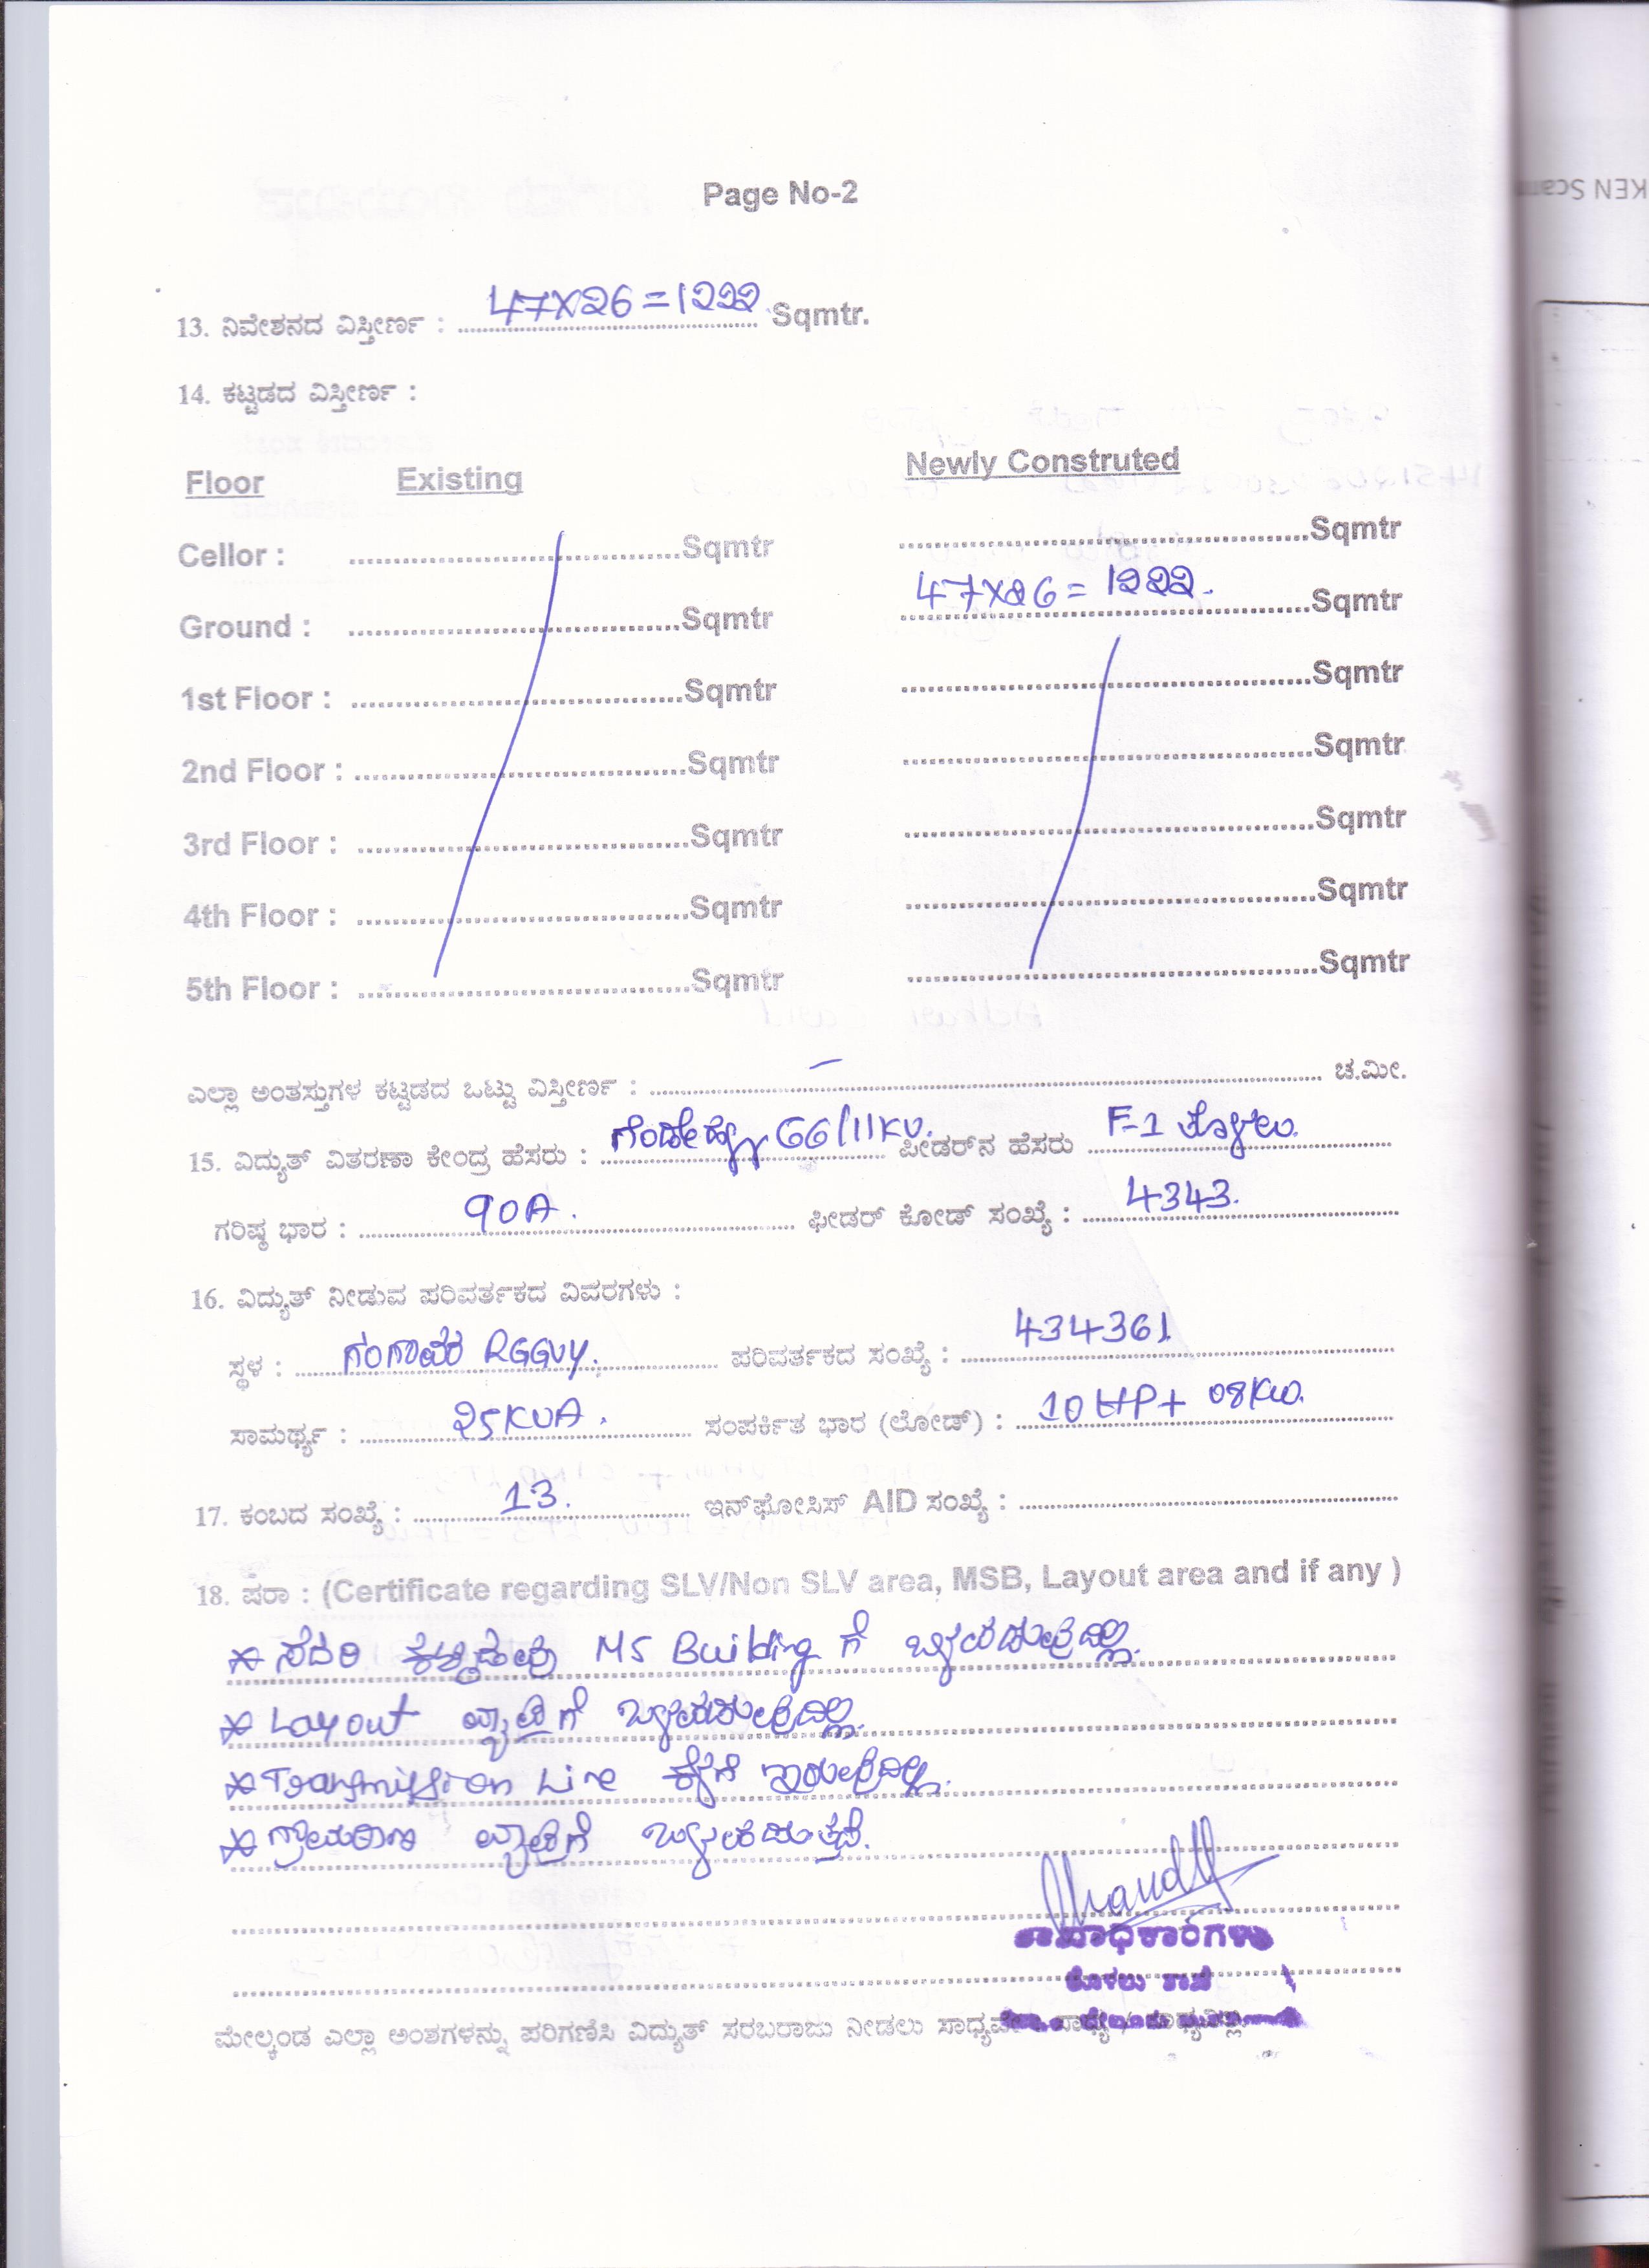 Page No-2
13. ನಿವೇಶನದ ವಿಸ್ತೀರ್ಣ : 47x26=1222 Sqmtr.
14. ಕಟ್ಟಡದ ವಿಸ್ತೀರ್ಣ :
Floor Existing Newly Construted
Cellor : Sqmtr Sqmtr
Ground : Sqmtr 47x26=1222. Sqmtr
1st Floor : Sqmtr Sqmtr
2nd Floor : Sqmtr Sqmtr
3rd Floor : Sqmtr Sqmtr
4th Floor : Sqmtr Sqmtr
5th Floor : Sqmtr Sqmtr
ಎಲ್ಲಾ ಅಂತಸ್ತುಗಳ ಕಟ್ಟಡದ ಒಟ್ಟು ವಿಸ್ತೀರ್ಣ : – ಚ.ಮೀ.
15. ವಿದ್ಯುತ್ ವಿತರಣಾ ಕೇಂದ್ರ ಹೆಸರು : 66/11KV. ಪೀಡರ್‌ನ ಹೆಸರು F-1
ಗರಿಷ್ಠ ಭಾರ : 90A. ಫೀಡರ್ ಕೋಡ್ ಸಂಖ್ಯೆ : 4343.
16. ವಿದ್ಯುತ್ ನೀಡುವ ಪರಿವರ್ತಕದ ವಿವರಗಳು :
ಸ್ಥಳ : RGGVY. ಪರಿವರ್ತಕದ ಸಂಖ್ಯೆ : 434361
ಸಾಮರ್ಥ್ಯ : 25KVA. ಸಂಪರ್ಕಿತ ಭಾರ (ಲೋಡ್) : 10HP+ 08Kw.
17. ಕಂಬದ ಸಂಖ್ಯೆ : 13. ಇನ್‌ಫೋಸಿಸ್ AID ಸಂಖ್ಯೆ :
18. ಷರಾ : (Certificate regarding SLV/Non SLV area, MSB, Layout area and if any )
* ಸದರಿ ಕಟ್ಟಡವು MS Building ಗೆ ಒಳಪಡುವುದಿಲ್ಲ.
* Layout ವ್ಯಾಪ್ತಿಗೆ ಒಳಪಡುವುದಿಲ್ಲ.
* Transmission Line ಕೆಳಗೆ ಇರುವುದಿಲ್ಲ.
* ವ್ಯಾಪ್ತಿಗೆ ಒಳಪಡುತ್ತದೆ.
ಮೇಲ್ಕಂಡ ಎಲ್ಲಾ ಅಂಶಗಳನ್ನು ಪರಿಗಣಿಸಿ ವಿದ್ಯುತ್ ಸರಬರಾಜು ನೀಡಲು